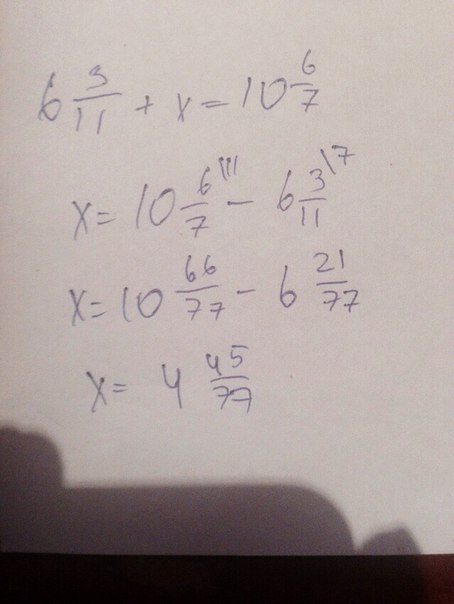 6 3/11 + x = 10 6/7
x = 10 6\11/7 - 6 3\7/11
x = 10 66/77 - 6 21/77
x = 4 45/77